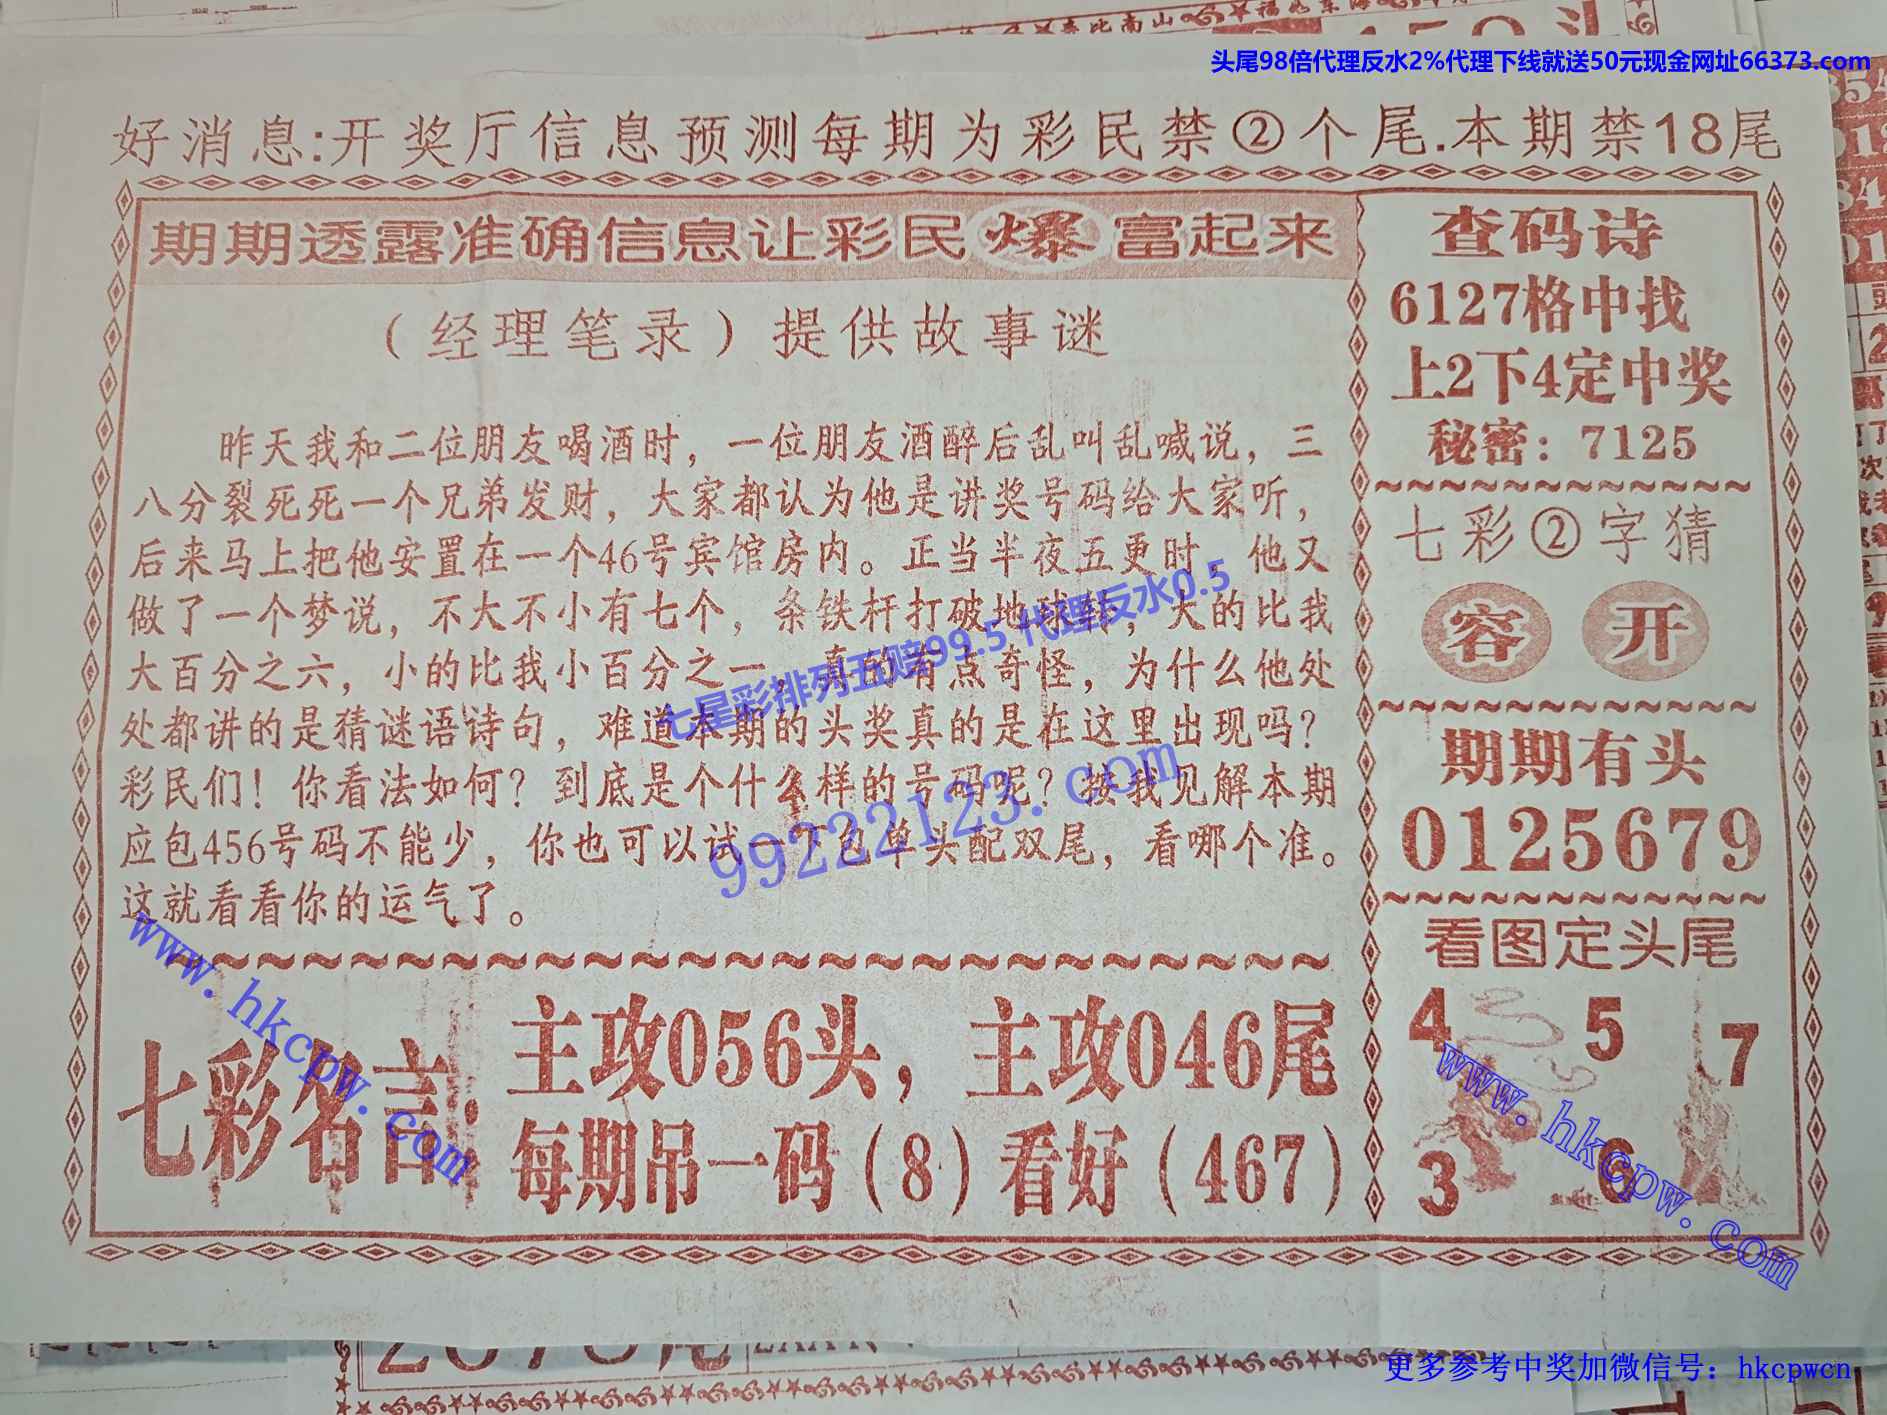 头尾98倍代理反水2%代理下线就送50元现金网址66373.com
好消息:开奖厅信息预测每期为彩民禁②个尾.本期禁18尾
期期透露准确信息让彩民爆富起来
（经理笔录）提供故事谜
昨天我和二位朋友喝酒时，一位朋友酒醉后乱叫乱喊说，三
八分裂死死一个兄弟发财，大家都认为他是讲奖号码给大家听，
后来马上把他安置在一个46号宾馆房内。正当半夜五更时，他又
做了一个梦说，不大不小有七个，条铁杆打破地球转，大的比我
大百分之六，小的比我小百分之一，真的有点奇怪，为什么他处
处都讲的是猜谜语诗句，难道本期的头奖真的是在这里出现吗？
彩民们！你看法如何？到底是个什么样的号码呢？按我见解本期
应包456号码不能少，你也可以试一下包单头配双尾，看哪个准。
这就看看你的运气了。
七彩名言:
主攻056头，主攻046尾
每期吊一码（8）看好（467）
查码诗
6127格中找
上2下4定中奖
秘密：7125
七彩②字猜
容 开
期期有头
0125679
看图定头尾
4 5 7
3 6
七星彩排列五赔99.5 代理反水0.5
99222123.com
www.hkcpw.com
www.hkcpw.com
更多参考中奖加微信号：hkcpwcn